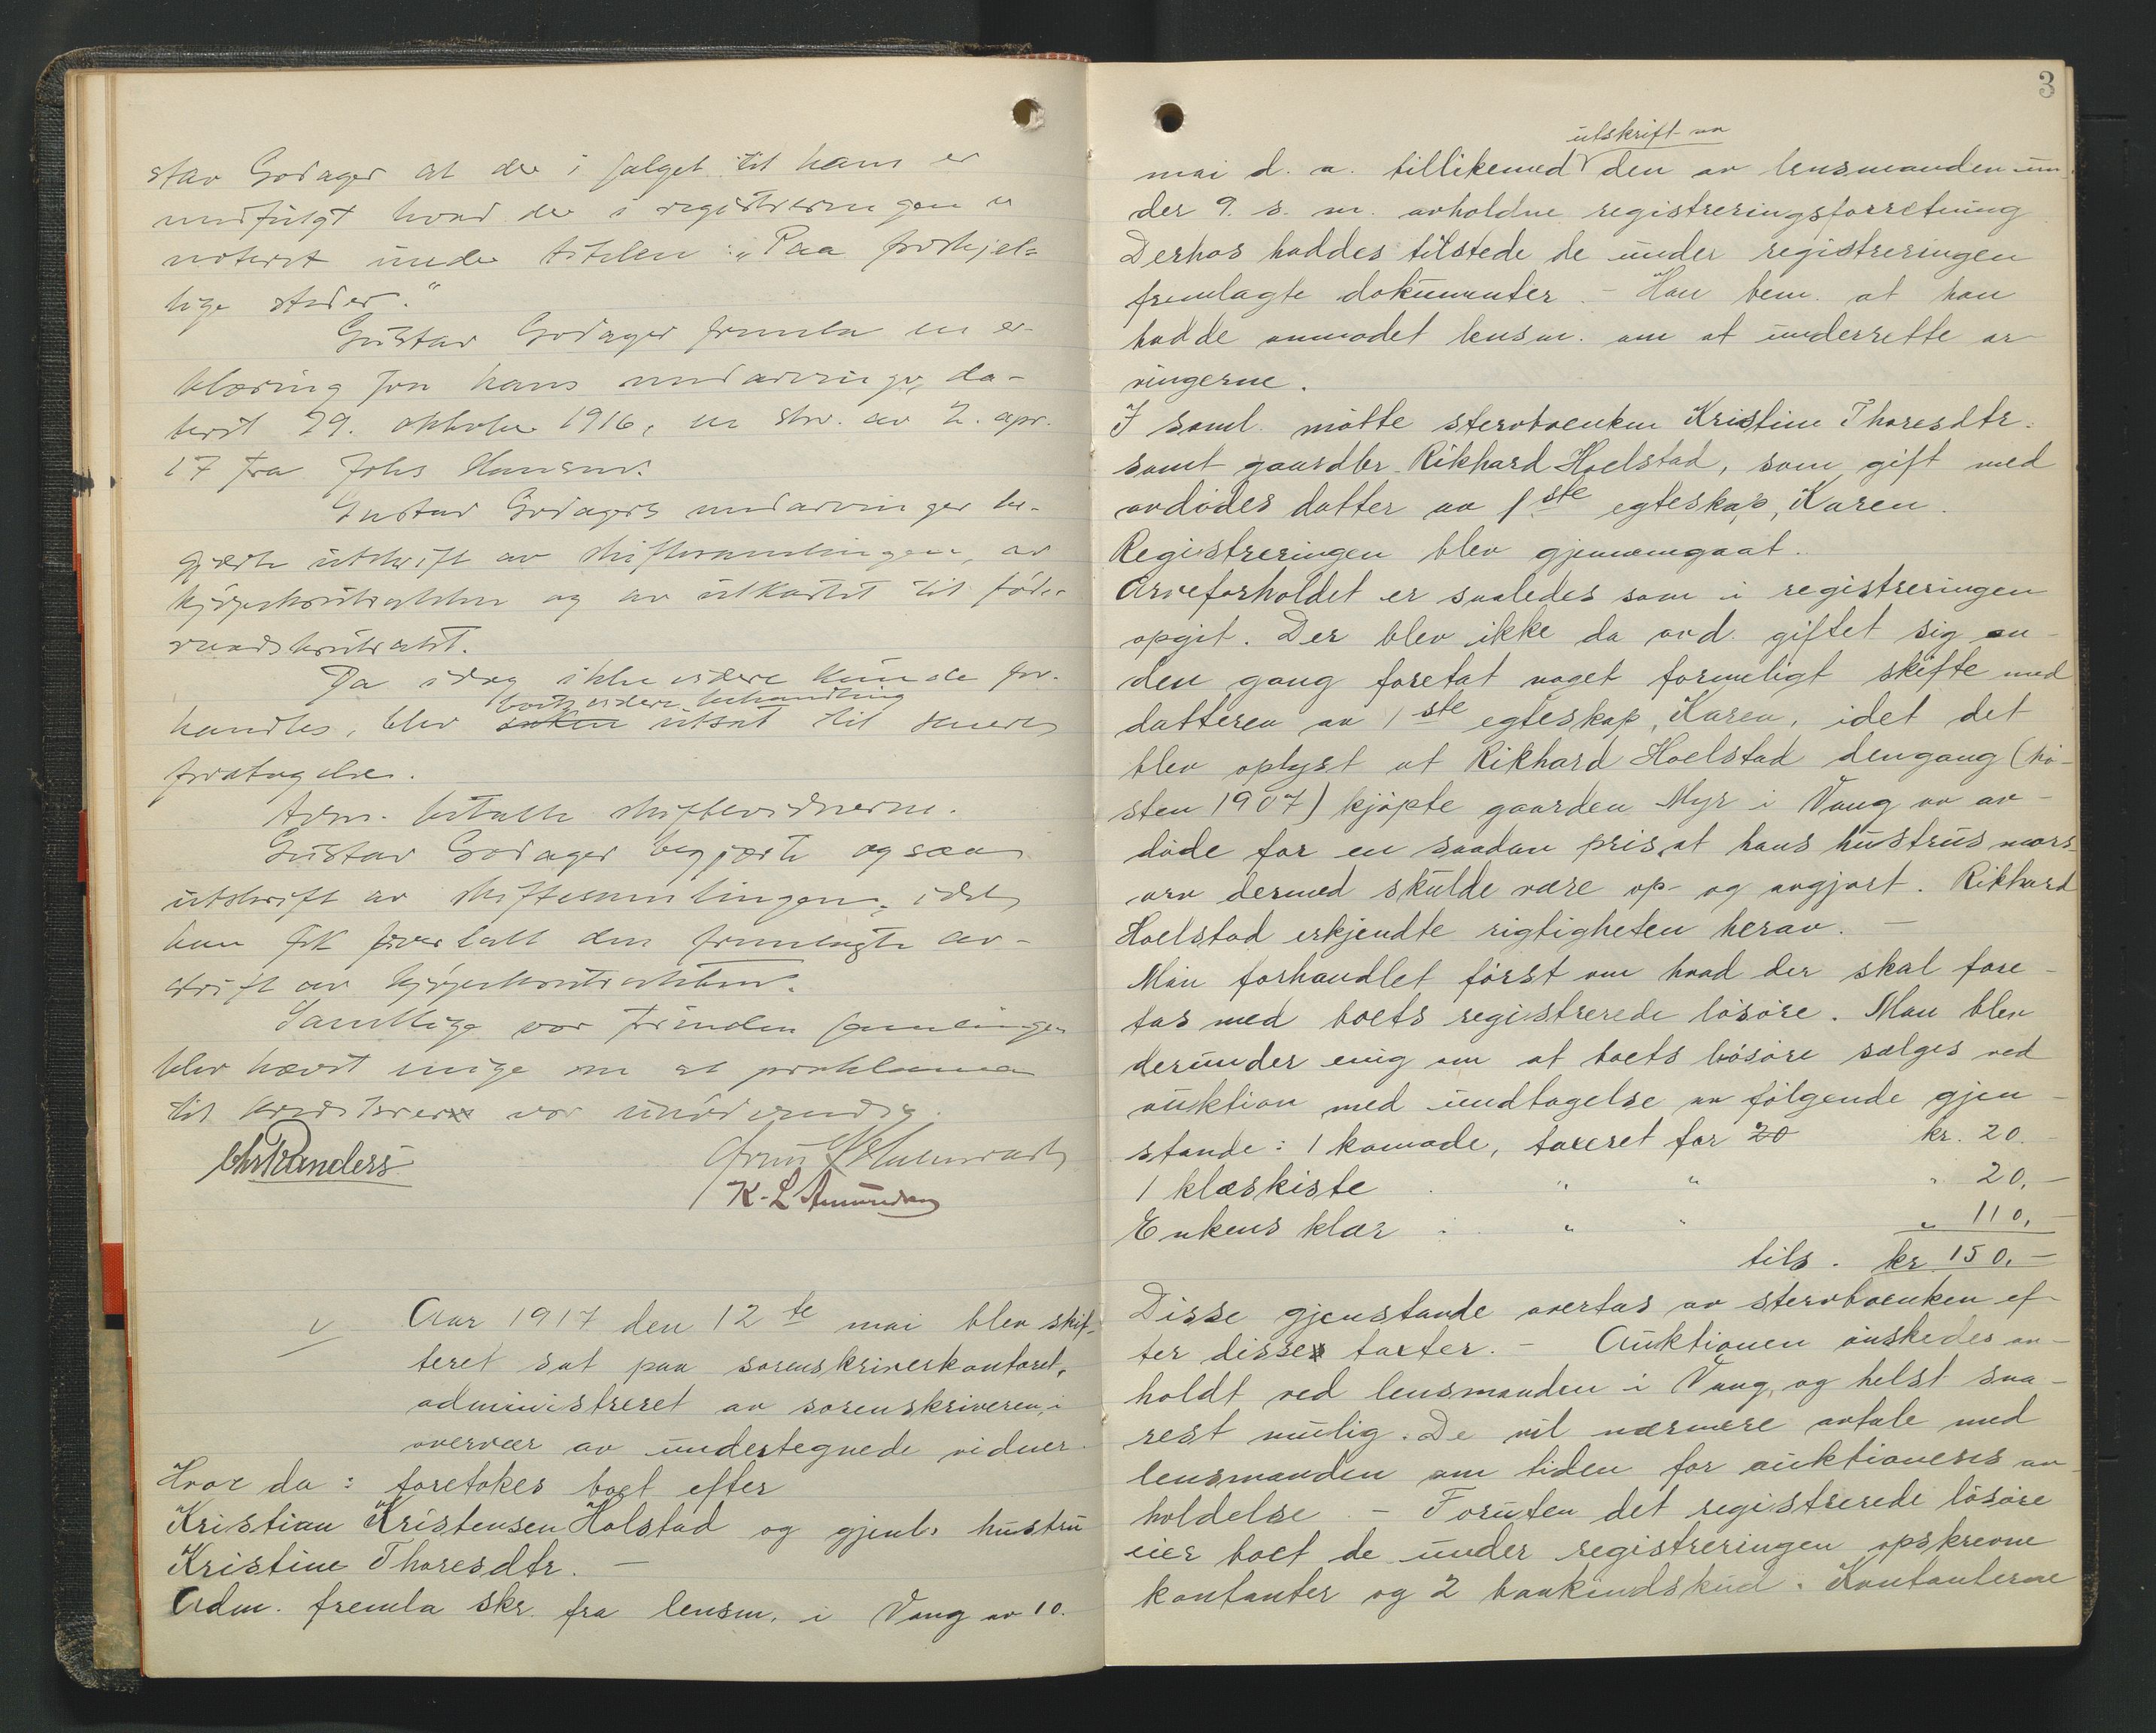 stav Godager at der i salget til ham er
medfulgt hvad der i registreringen er
notert under titelen: „Paa forskjel-
lige steder."
Gustav Godager fremla en er-
klæring fra hans medarvinger, da-
tert 29. oktober 1916, en skr. av 2. apr.
17 fra Johs Hansen.
Gustav Godagers medarvinger be-
gjærte utskrift av skiftesamlingen, av
kjøpekontrakten og av utkastet til føde-
raadskontrakt.
Da idag ikke videre kunde for-
boets videre behandling
handles, blev saken utsat til senere
foretagelse.
Adm. betalte skiftevidnerne.
Gustav Godager begjærte ogsaa
utskrift av skiftesamlingen, idet
han fik overlatt den fremlagte av-
skrift av kjøpekontrakten.
Samtlige
blev enige om at proklama
til kreditorer var unødvendig.
Chr Randers
K. L. Amundsen
Aar 1917 den 12te mai blev skif-
teret sat paa sorenskriverkontoret,
administreret av sorenskriveren, i
overvær av undertegnede vidner.
Hvor da: foretokes boet efter
Kristian Kristensen Holstad og gjenl. hustru
Kristine Thoresdtr. —
Adm. fremla skr. fra lensm. i Vang av 10.
3
utskrift av
mai d. a. tillikemed den av lensmanden un-
der 9. s. m. avholdne registreringsforretning
Derhos haddes tilstede de under registreringen
fremlagte dokumenter. - Han bem. at han
hadde anmodet lensm. om at underrette ar-
vingerne.
I saml. møtte stervboenken Kristine Thoresdtr.
samt gaardbr. Rikhard Hoelstad, som gift med
avdødes datter av 1ste egteskap, Karen.
Registreringen blev gjennemgaat.
Arveforholdet er saaledes som i registreringen
opgit. Der blev ikke da avd. giftet sig an-
den gang foretat noget formeligt skifte med
datteren av 1ste egteskap, Karen, idet det
blev oplyst at Rikhard Hoelstad dengang (hø-
sten 1907) kjøpte gaarden Myr i Vang av av-
døde for en saadan pris, at hans hustrus mors-
arv dermed skulde være op- og avgjort. Rikhard
Hoelstad erkjendte rigtigheten herav. —
Man forhandlet først om hvad der skal fore-
tas med boets registrerede løsøre. Man blev
derunder enig om at boets løsøre sælges ved
auktion med undtagelse av følgende gjen-
stande: 1 komode, taxeret for 20 kr. 20.-
1 klæskiste . „ „ „ 20,-
Enkens klær : „ „ „ 110,-
tils. kr 150,-
Disse gjenstande overtas av stervboenken ef-
ter disse taxter. - Auktionen ønskedes av-
holdt ved lensmanden i Vang, og helst sna-
rest mulig. De vil nærmere avtale med
lensmanden om tiden for auktionens av-
holdelse. - Foruten det registrerede løsøre
eier boet de under registreringen opskrevne
kontanter og 2 bankindskud. Kontanterne